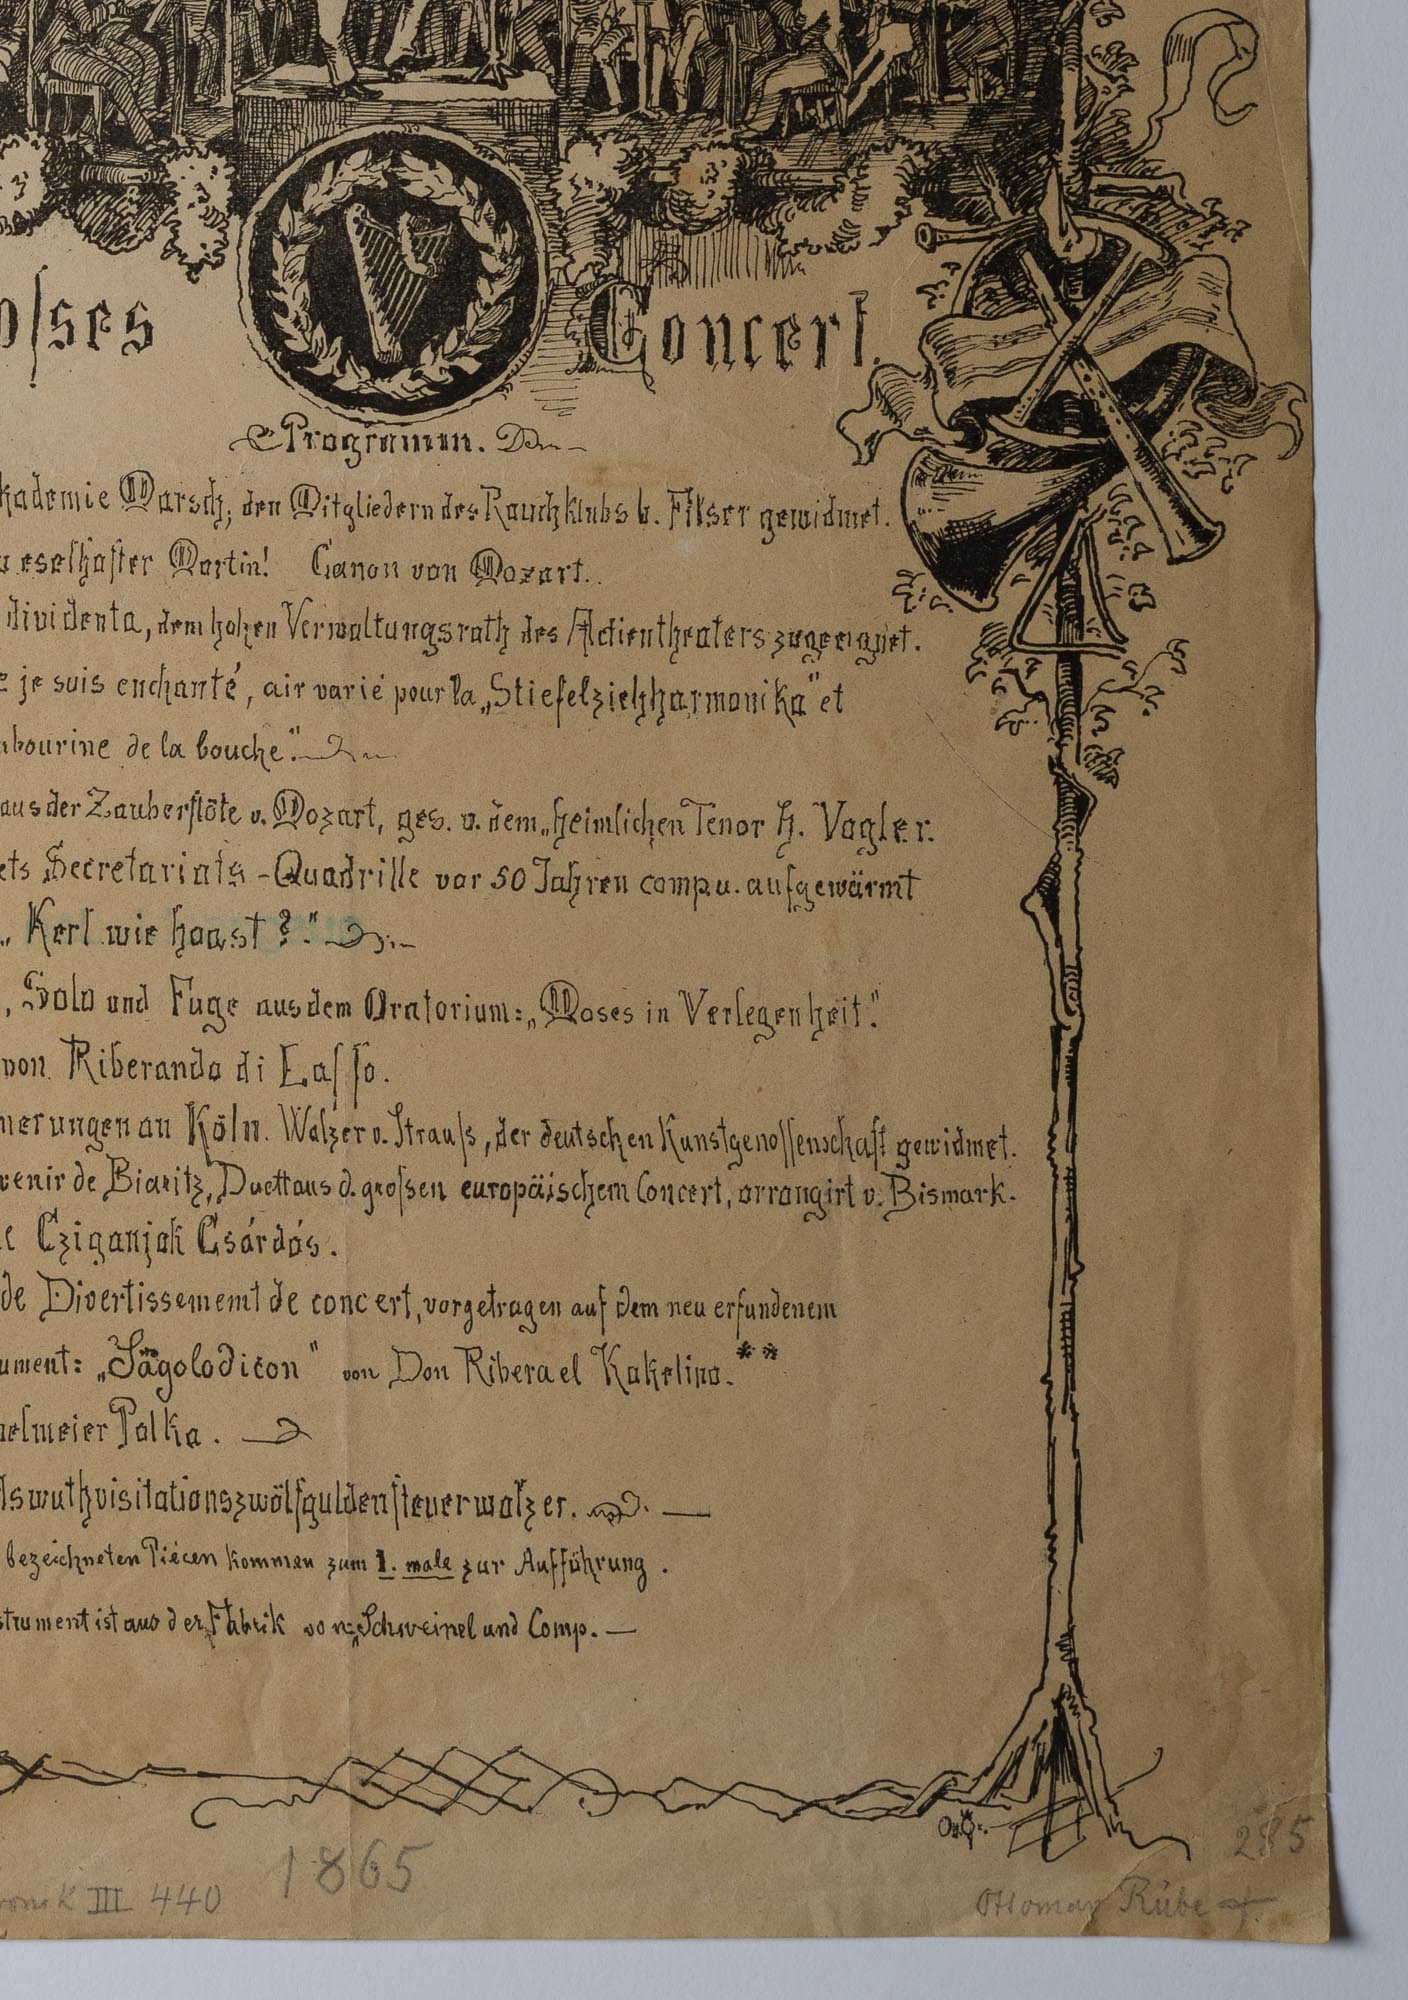 oſses Concert.
Programm.
kademie Marsch, den Mitgliedern des Rauchklubs b. Filser gewidmet.
eselhafter Martin! Canon von Mozart.
dividenta, dem hohen Verwaltungsrath des Actientheaters zugeeignet.
je suis enchanté, air varié pour la „Stiefelziehharmonika" et
bourine de la bouche."
aus der Zauberflöte v. Mozart, ges. v. dem „heimlichen Tenor H. Vogler.
ets Secretariats-Quadrille vor 50 Jahren comp u. aufgewärmt
„Kerl wie haast?"
, Solo und Fuge aus dem Oratorium: „Moses in Verlegenheit".
von Riberando di Laſſo.
nerungen an Köln. Walzer v. Strauſs, der deutschen Kunstgenoſſenschaft gewidmet.
venir de Biaritz, Duett aus d. groſsen europäischem Concert, arrangirt v. Bismark.
Cziganjok Csárdás.
de Divertissememt de concert, vorgetragen auf dem neu erfundenem
ument: „Sägolodicon" von Don Ribera el Kakelino.**
elmeier Polka.
lswuthvisitationszwölfguldenſteuerwalzer.
bezeichneten Piécen kommen zum 1. male zur Aufführung.
strument ist aus der Fabrik von „Schweinel und Comp.
1865
285
ronik III 440
Ottomar Rübe